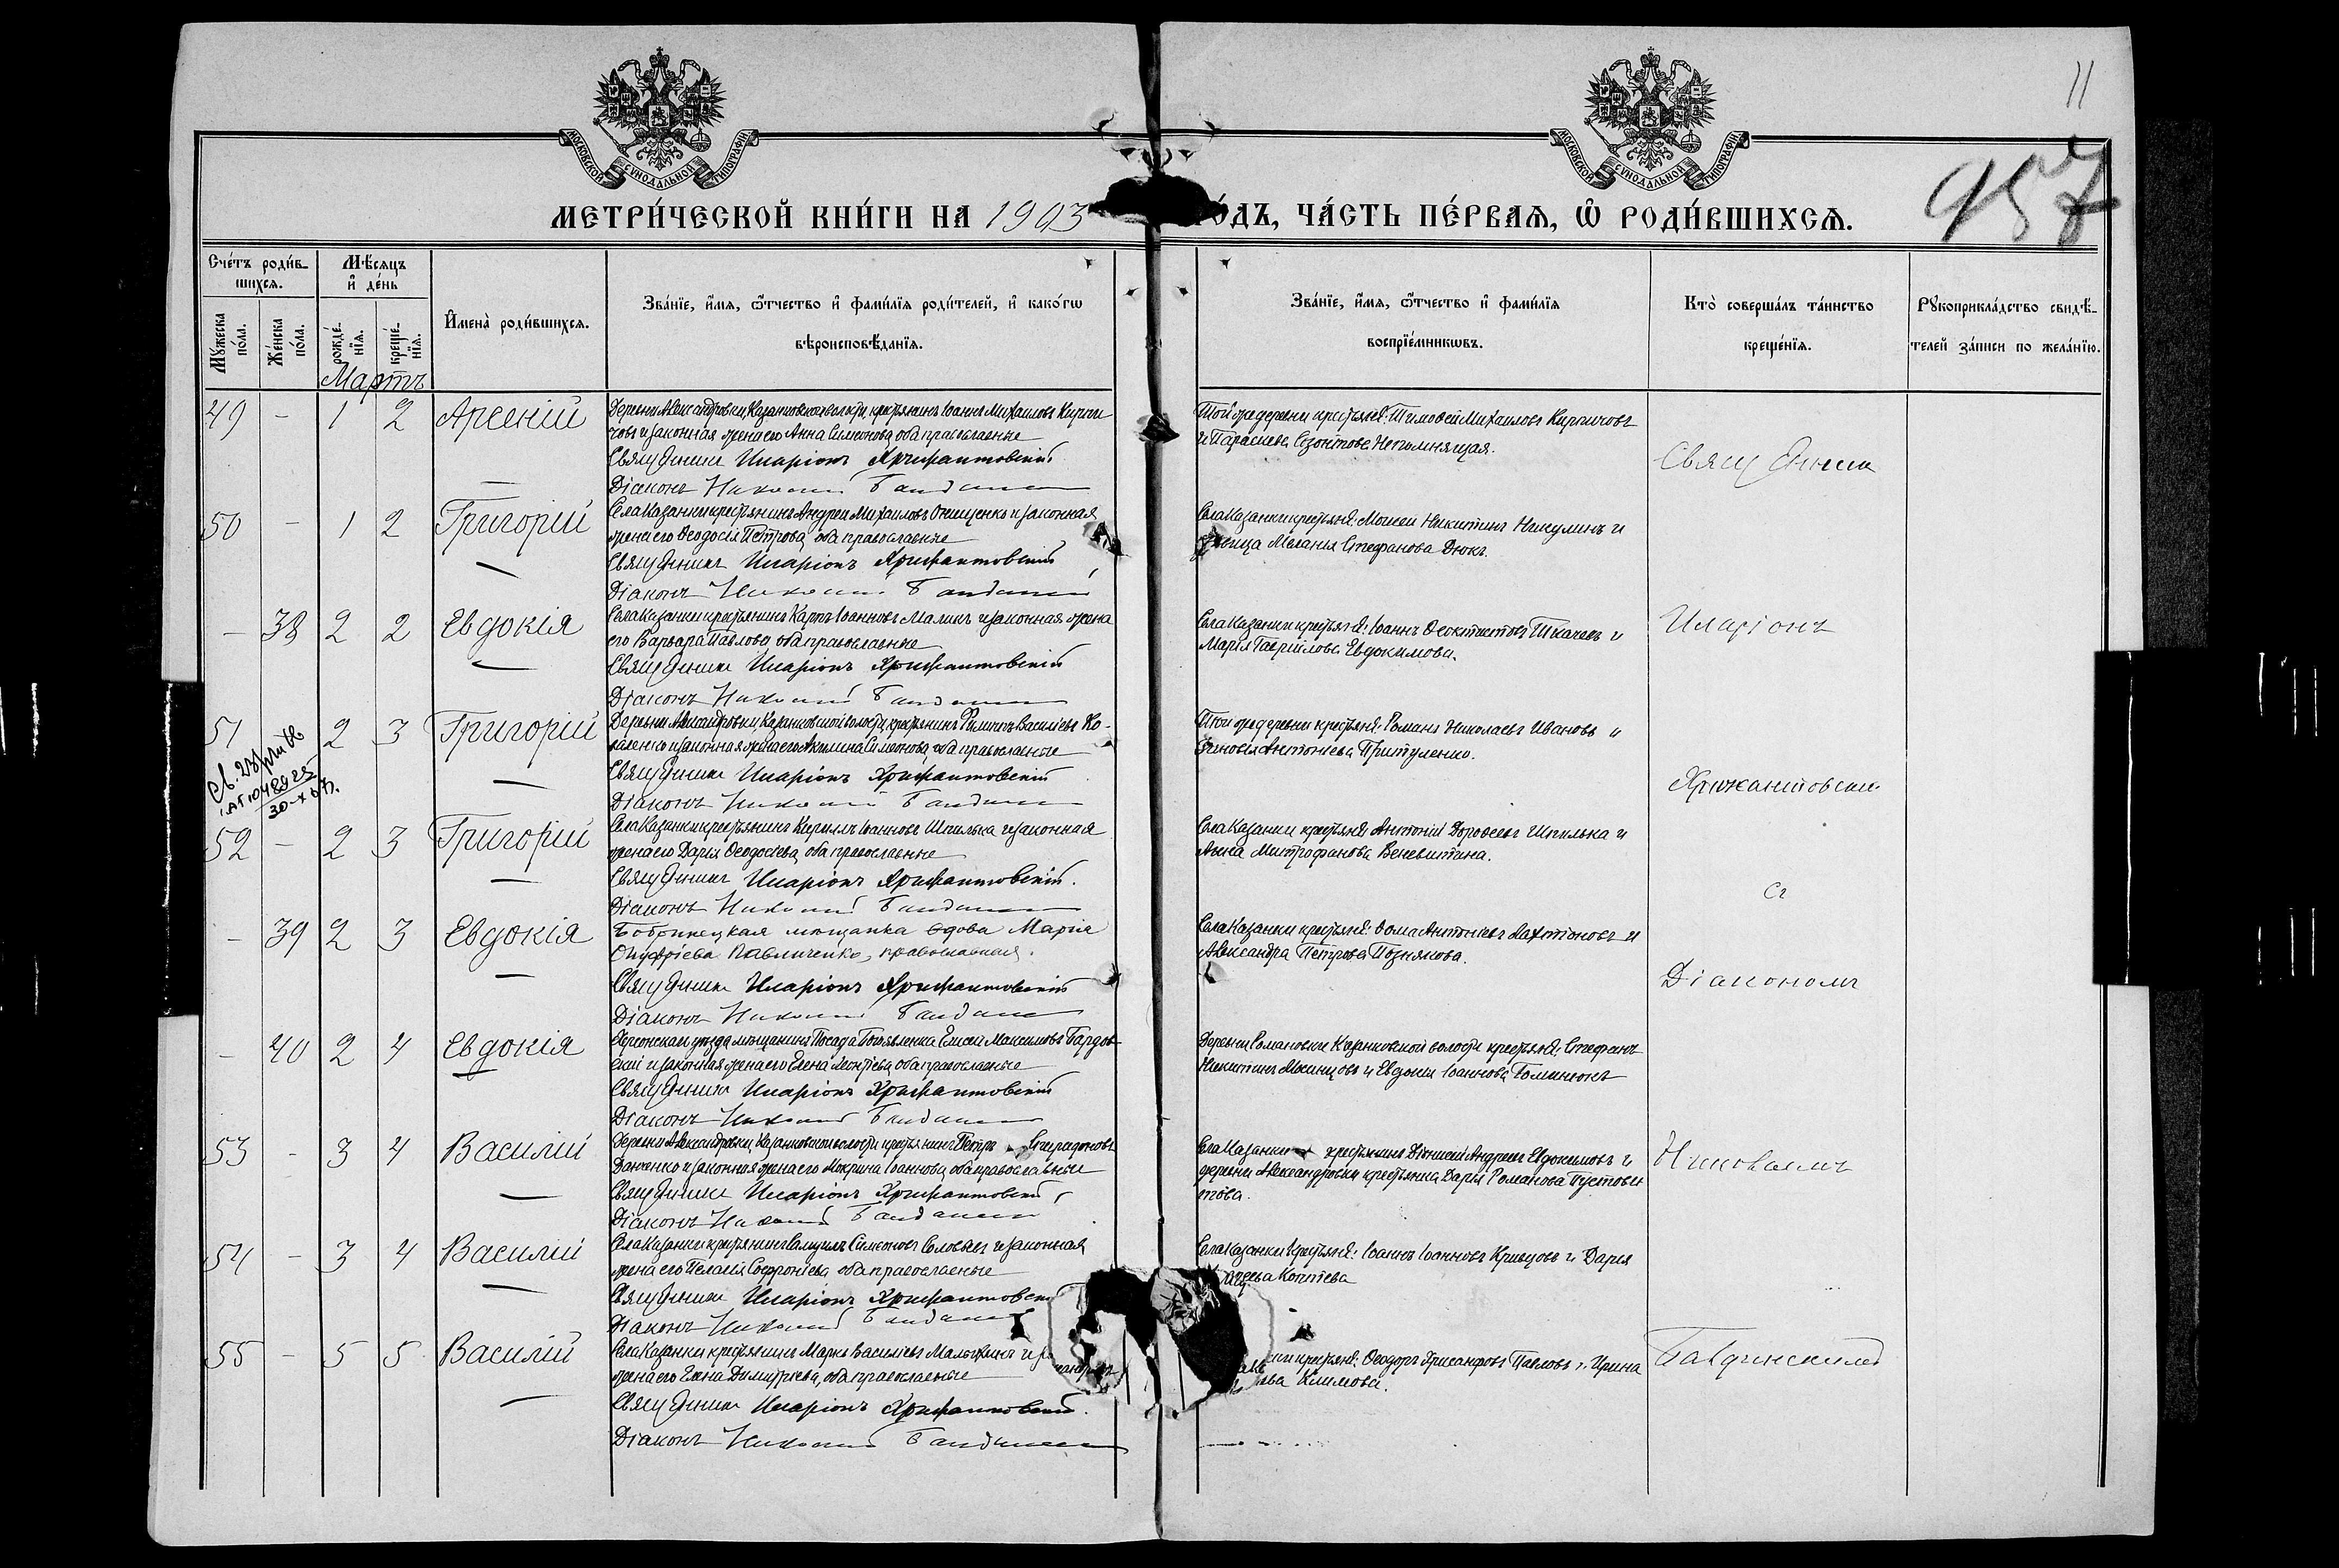 11
957
МОСКОВСКОЙ СѴНОДАЛЬНОЙ ТИПОГРАФІИ
МОСКОВСКОЙ СѴНОДАЛЬНОЙ ТИПОГРАФІИ
МЕТРИ́ЧЕСКОЙ КНИ́ГИ НА 1903
О́ДЪ, ЧА́СТЬ ПЕ́РВАѦ, Ѽ РОДИ́ВШИХСѦ.
Сче́тъ роди́в-
шихсѧ.
Мꙋжеска по́ла.
Же́нска по́ла.
Мѣ́сяцъ
и҆ де́нь
рожде́-
нїѧ.
креще́-
нїѧ.
Мартъ
И҆мена̀ роди́вшихсѧ.
Зва́нїе, и҆́мѧ, ѿ́тчество и҆ фами́лїѧ роди́телей, и҆ како́гѡ
вѣроисповѣ́данїѧ.
Зва́нїе, и҆́мѧ, ѿ́тчество и҆ фами́лїѧ
воспрїе́мникѡвъ.
Кто̀ соверша́лъ та́инство
креще́нїѧ.
Рꙋкоприкла́дство свидѣ́-
телей за́писи по жела́нїю.
49 - 1 2 Арсеній
Деревни Александровки, Казанковской волости, крестьянинъ Іоаннъ Михаиловъ Кирпи-
човъ и законная жена его Анна Симеонова, оба православные
Священникъ Иларіонъ Хрисантовскій
Діаконъ Николай
Той же деревни крестьяне: Тимоѳей Михаиловъ Кирпичовъ
и Параскева Созонтова Непомнящая.
50 - 1 2 Григорій
Села Казанки крестьянинъ Андрей Михаиловъ Онищенко и законная
жена его Ѳеодосія Петрова, оба православные
Священникъ Иларіонъ Хрисантовскій
Діаконъ Николай
Села Казанки крестьяне: Моисей Никитинъ Никулинъ и
Меланія Стефанова Дюкъ.
- 38 2 2 Евдокія
Села Казанки крестьянинъ Карпъ Іоанновъ Малинъ и законная жена
его Варвара Павлова, оба православные
Священникъ Иларіонъ Хрисантовскій
Діаконъ Николай
Села Казанки крестьяне: Іоаннъ Ѳеоктистовъ Ткачевъ и
Марія Гавріилова Евдокимова.
51 2 3 Григорій
30-X 67.
Деревни Александровки, Казанковской волости, крестьянинъ Филиппъ Василіевъ Ко-
валенко и законная жена его Акилина Симеонова, оба православные
Священникъ Иларіонъ Хрисантовскій
Діаконъ Николай
Той же деревни крестьяне: Романъ Николаевъ Ивановъ и
Зиновія Антоніева Притуленко.
52 - 2 3 Григорій
Села Казанки крестьянинъ Кириллъ Іоанновъ Шпилька и законная
жена его Дарія Ѳеодосіева, оба православные
Священникъ Иларіонъ Хрисантовскій.
Діаконъ Николай
Села Казанки крестьяне: Антоній Дороѳеевъ Шпилька и
Анна Митрофанова Веневитина.
- 39 2 3 Евдокія
Бобринецкая мѣщанка вдова Марія
Онуфріева Павличенко, православная.
Священникъ Иларіонъ Хрисантовскій
Діаконъ Николай
Села Казанки крестьяне: Ѳома Антоніевъ и
Александра Петрова Познякова.
- 40 2 4 Евдокія
Херсонскаго уѣзда мѣщанинъ Посада Богоявленска Елисей Максимовъ Бардов-
скій и законная жена его Елена Леонтіева, оба православные
Священникъ Иларіонъ Хрисантовскій
Діаконъ Николай
Деревни Романовки Казанковской волости крестьяне: Стефанъ
Никитинъ и Евдокія Іоаннова
53 - 3 4 Василій
Деревни Александровки, Казанковской волости, крестьянинъ Петръ Спиридоновъ
Данченко и законная жена его Макрина Іоаннова, оба православные
Священникъ Иларіонъ Хрисантовскій
Діаконъ Николай
Села Казанки крестьянинъ Діонисій Андреевъ Евдокимовъ и
деревни Александровки крестьянка Дарія Романова Пустови-
това.
54 - 3 4 Василій
Села Казанки крестьянинъ Самуилъ Симеоновъ Соловьевъ и законная
жена его Пелагія Софроніева, оба православные
Священникъ Иларіонъ Хрисантовскій
Діаконъ Николай
Села Казанки крестьяне: Іоаннъ Іоанновъ Кривцовъ и Дарія
Коптева
55 - 5 5 Василій
Села Казанки крестьянинъ Маркъ Василіевъ Малыхинъ и
жена его Елена Димитріева, оба православные
Священникъ Иларіонъ Хрисантовскій.
Діаконъ Николай
крестьяне: Ѳеодоръ Хрисанфовъ Павловъ и Ирина
Климова.
Священникъ
Иларіонъ
Хрисантовскій
съ
Діакономъ
Николаемъ